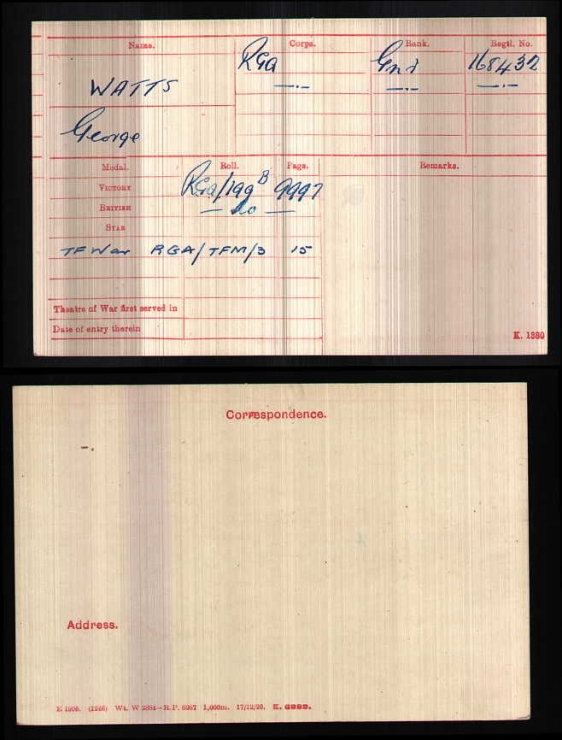 Name. Corps. Rank. Regtl. No.
WATTS RGA Gnr 168432
George
Medal. Roll. Page. Remarks.
VICTORY RGA/199B 9997
BRITISH — do —
STAR
TF War RGA/TFM/3 15
Theatre of War first served in
Date of entry therein
K. 1380
Correspondence.
Address.
(1566) Wt. W 5318—R.P. 6267 1,000m. 17/12/20. K. 6999.